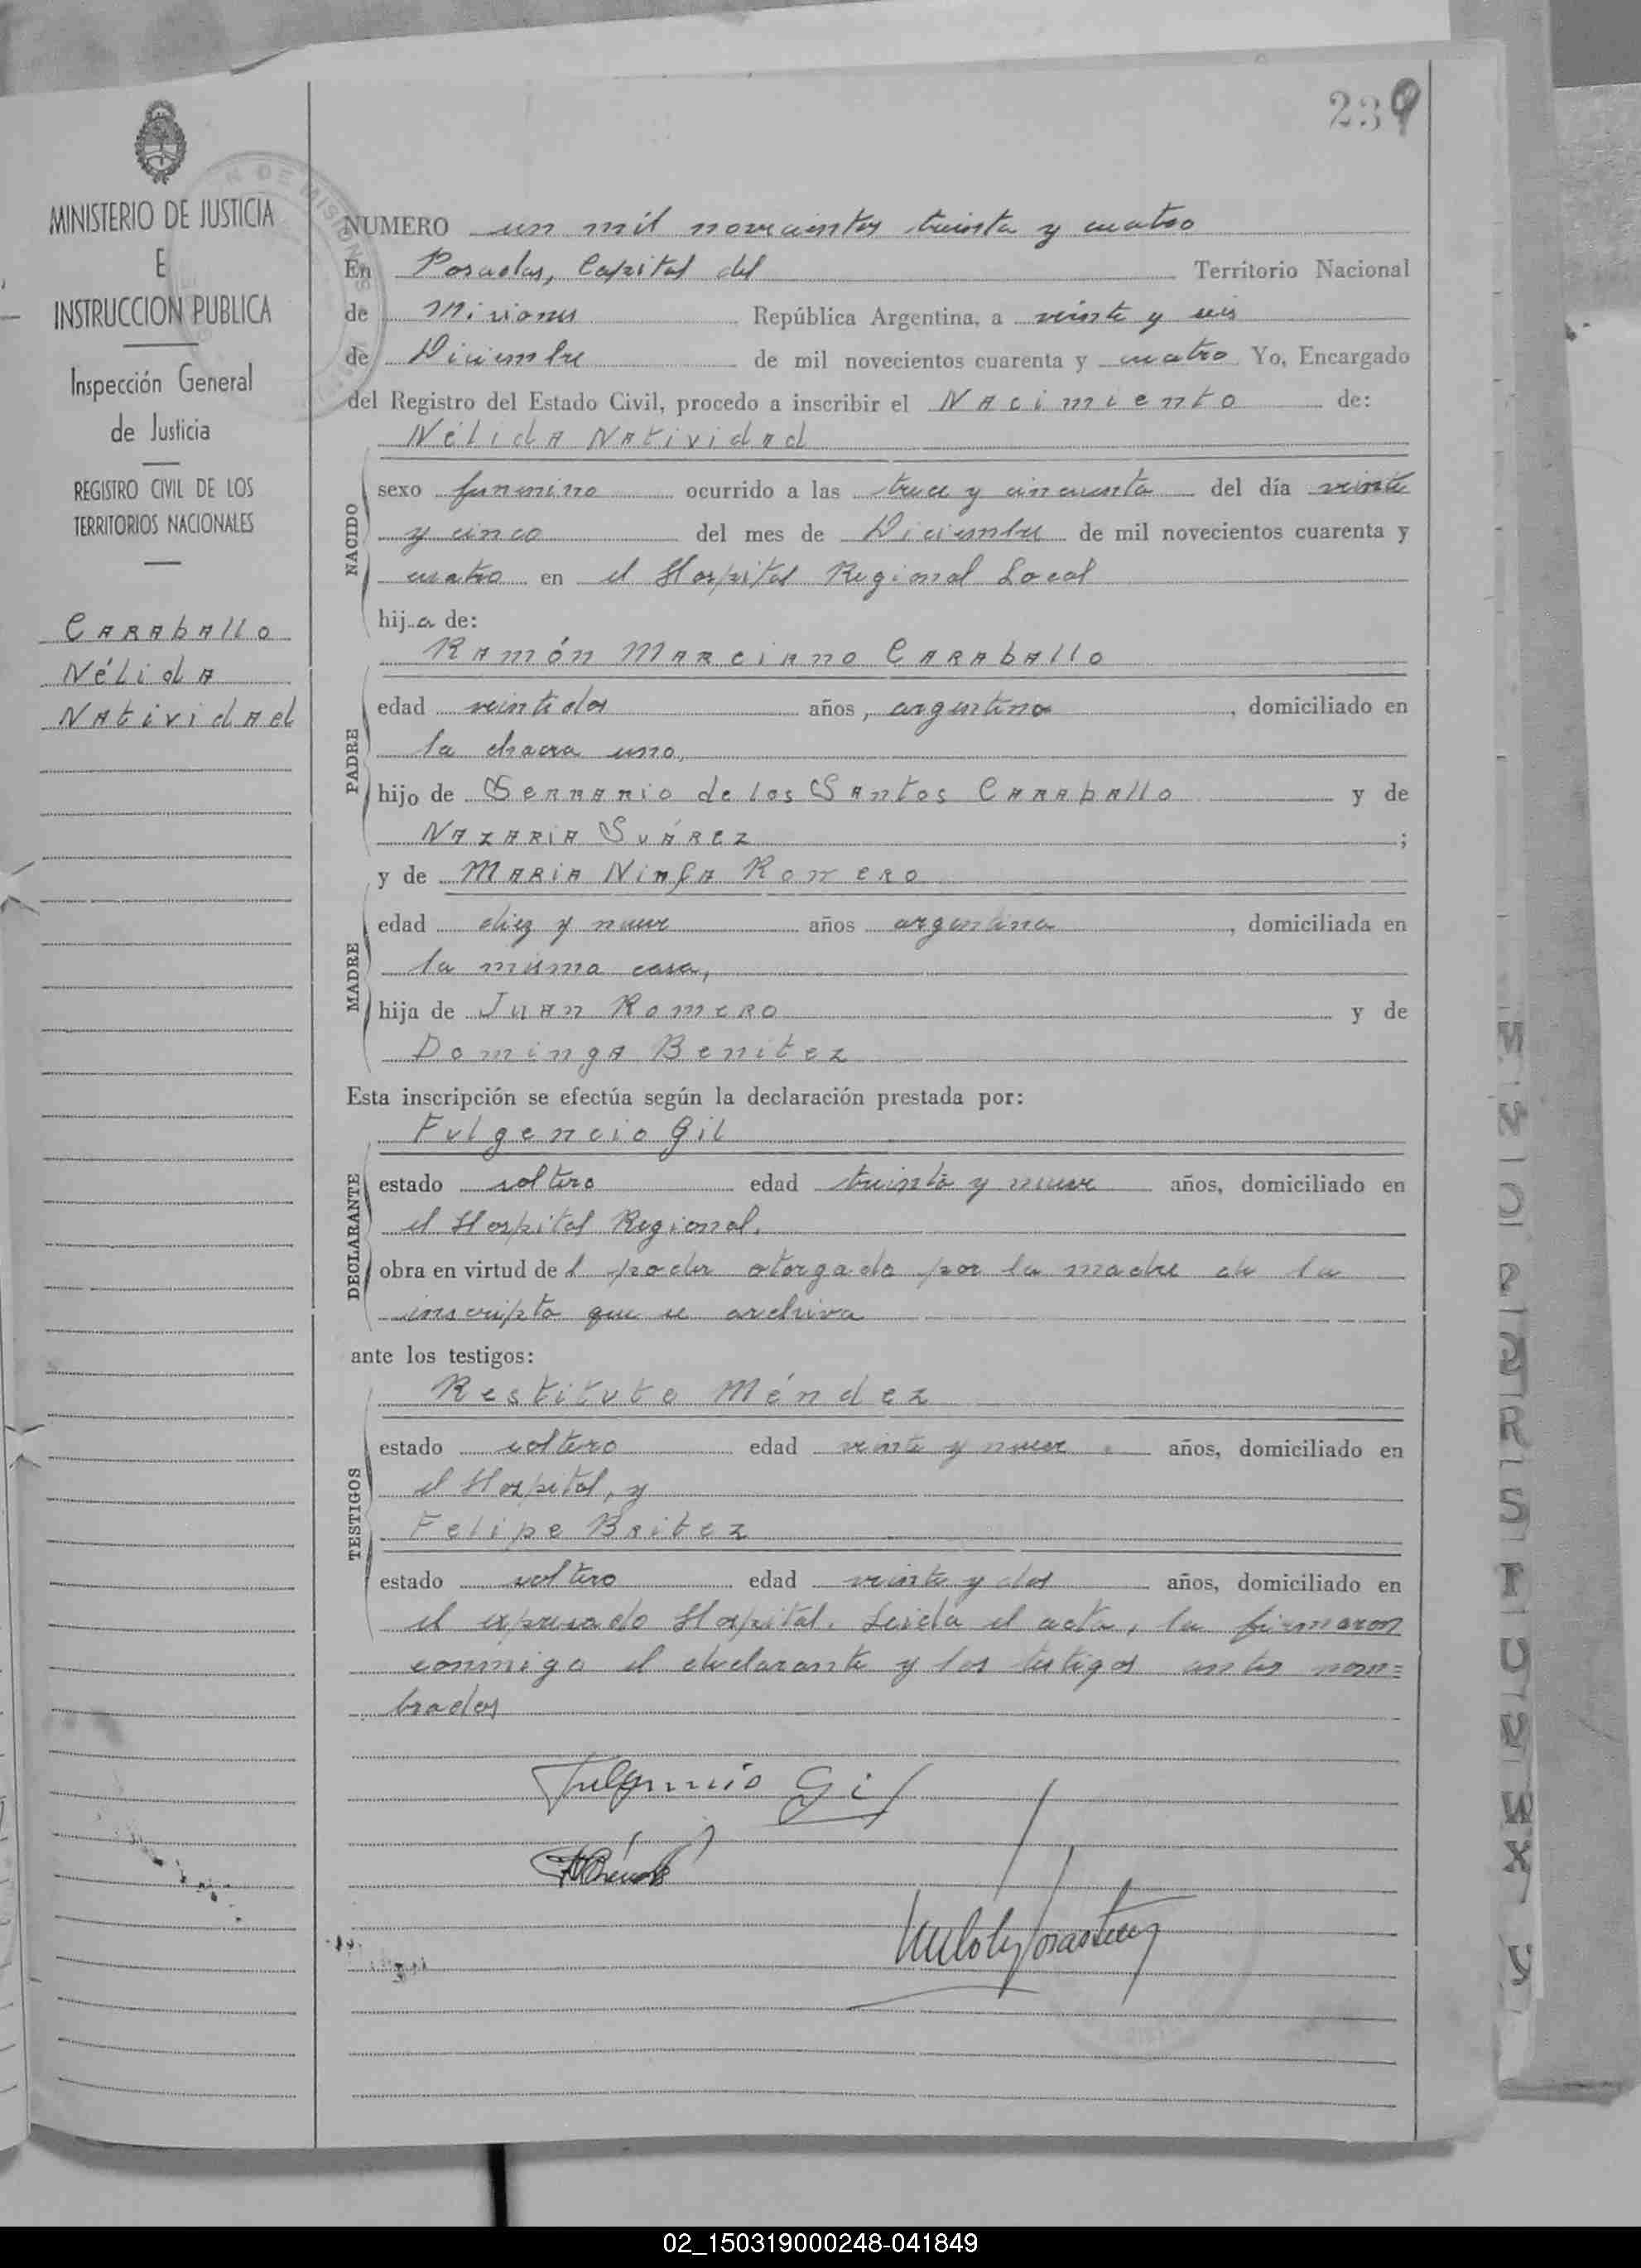 239
MINISTERIO DE JUSTICIA
E
INSTRUCCION PUBLICA
Inspección General
de Justicia
REGISTRO CIVIL DE LOS
TERRITORIOS NACIONALES
CARABALLO
NÉLIDA
NATIVIDAD
NUMERO un mil novecientos treinta y cuatro
En Posadas, Capital del Territorio Nacional
de Misiones República Argentina, a veinte y seis
de Diciembre de mil novecientos cuarenta y cuatro Yo, Encargado
del Registro del Estado Civil, procedo a inscribir el Nacimiento de:
Nélida Natividad
NACIDO
sexo femenino ocurrido a las trece y cincuenta del día veinte
y cinco del mes de Diciembre de mil novecientos cuarenta y
cuatro en el Hospital Regional Local
hij a de:
Ramón Marciano Caraballo
PADRE
edad veintidos años, argentino, domiciliado en
la chacra uno,
hijo de de los Santos Caraballo y de
Nazaria Suárez ;
y de Maria Ninfa Romero
MADRE
edad diez y nueve años argentina, domiciliada en
la misma casa,
hija de Juan Romero y de
Dominga Benitez
Esta inscripción se efectúa según la declaración prestada por:
Fulgencio Gil
DECLARANTE
estado soltero edad treinta y nueve años, domiciliado en
el Hospital Regional.
obra en virtud de l poder otorgado por la madre de la
inscripta que se archiva
ante los testigos:
Restituto Méndez
TESTIGOS
estado soltero edad veinte y nueve años, domiciliado en
el Hospital, y
Felipe Britez
estado soltero edad veinte y dos años, domiciliado en
el expresado Hospital. Leida el acta, la firmaron
conmigo el declarante y los testigos antes nom=
brados
Fulgencio Gil
02_150319000248-041849